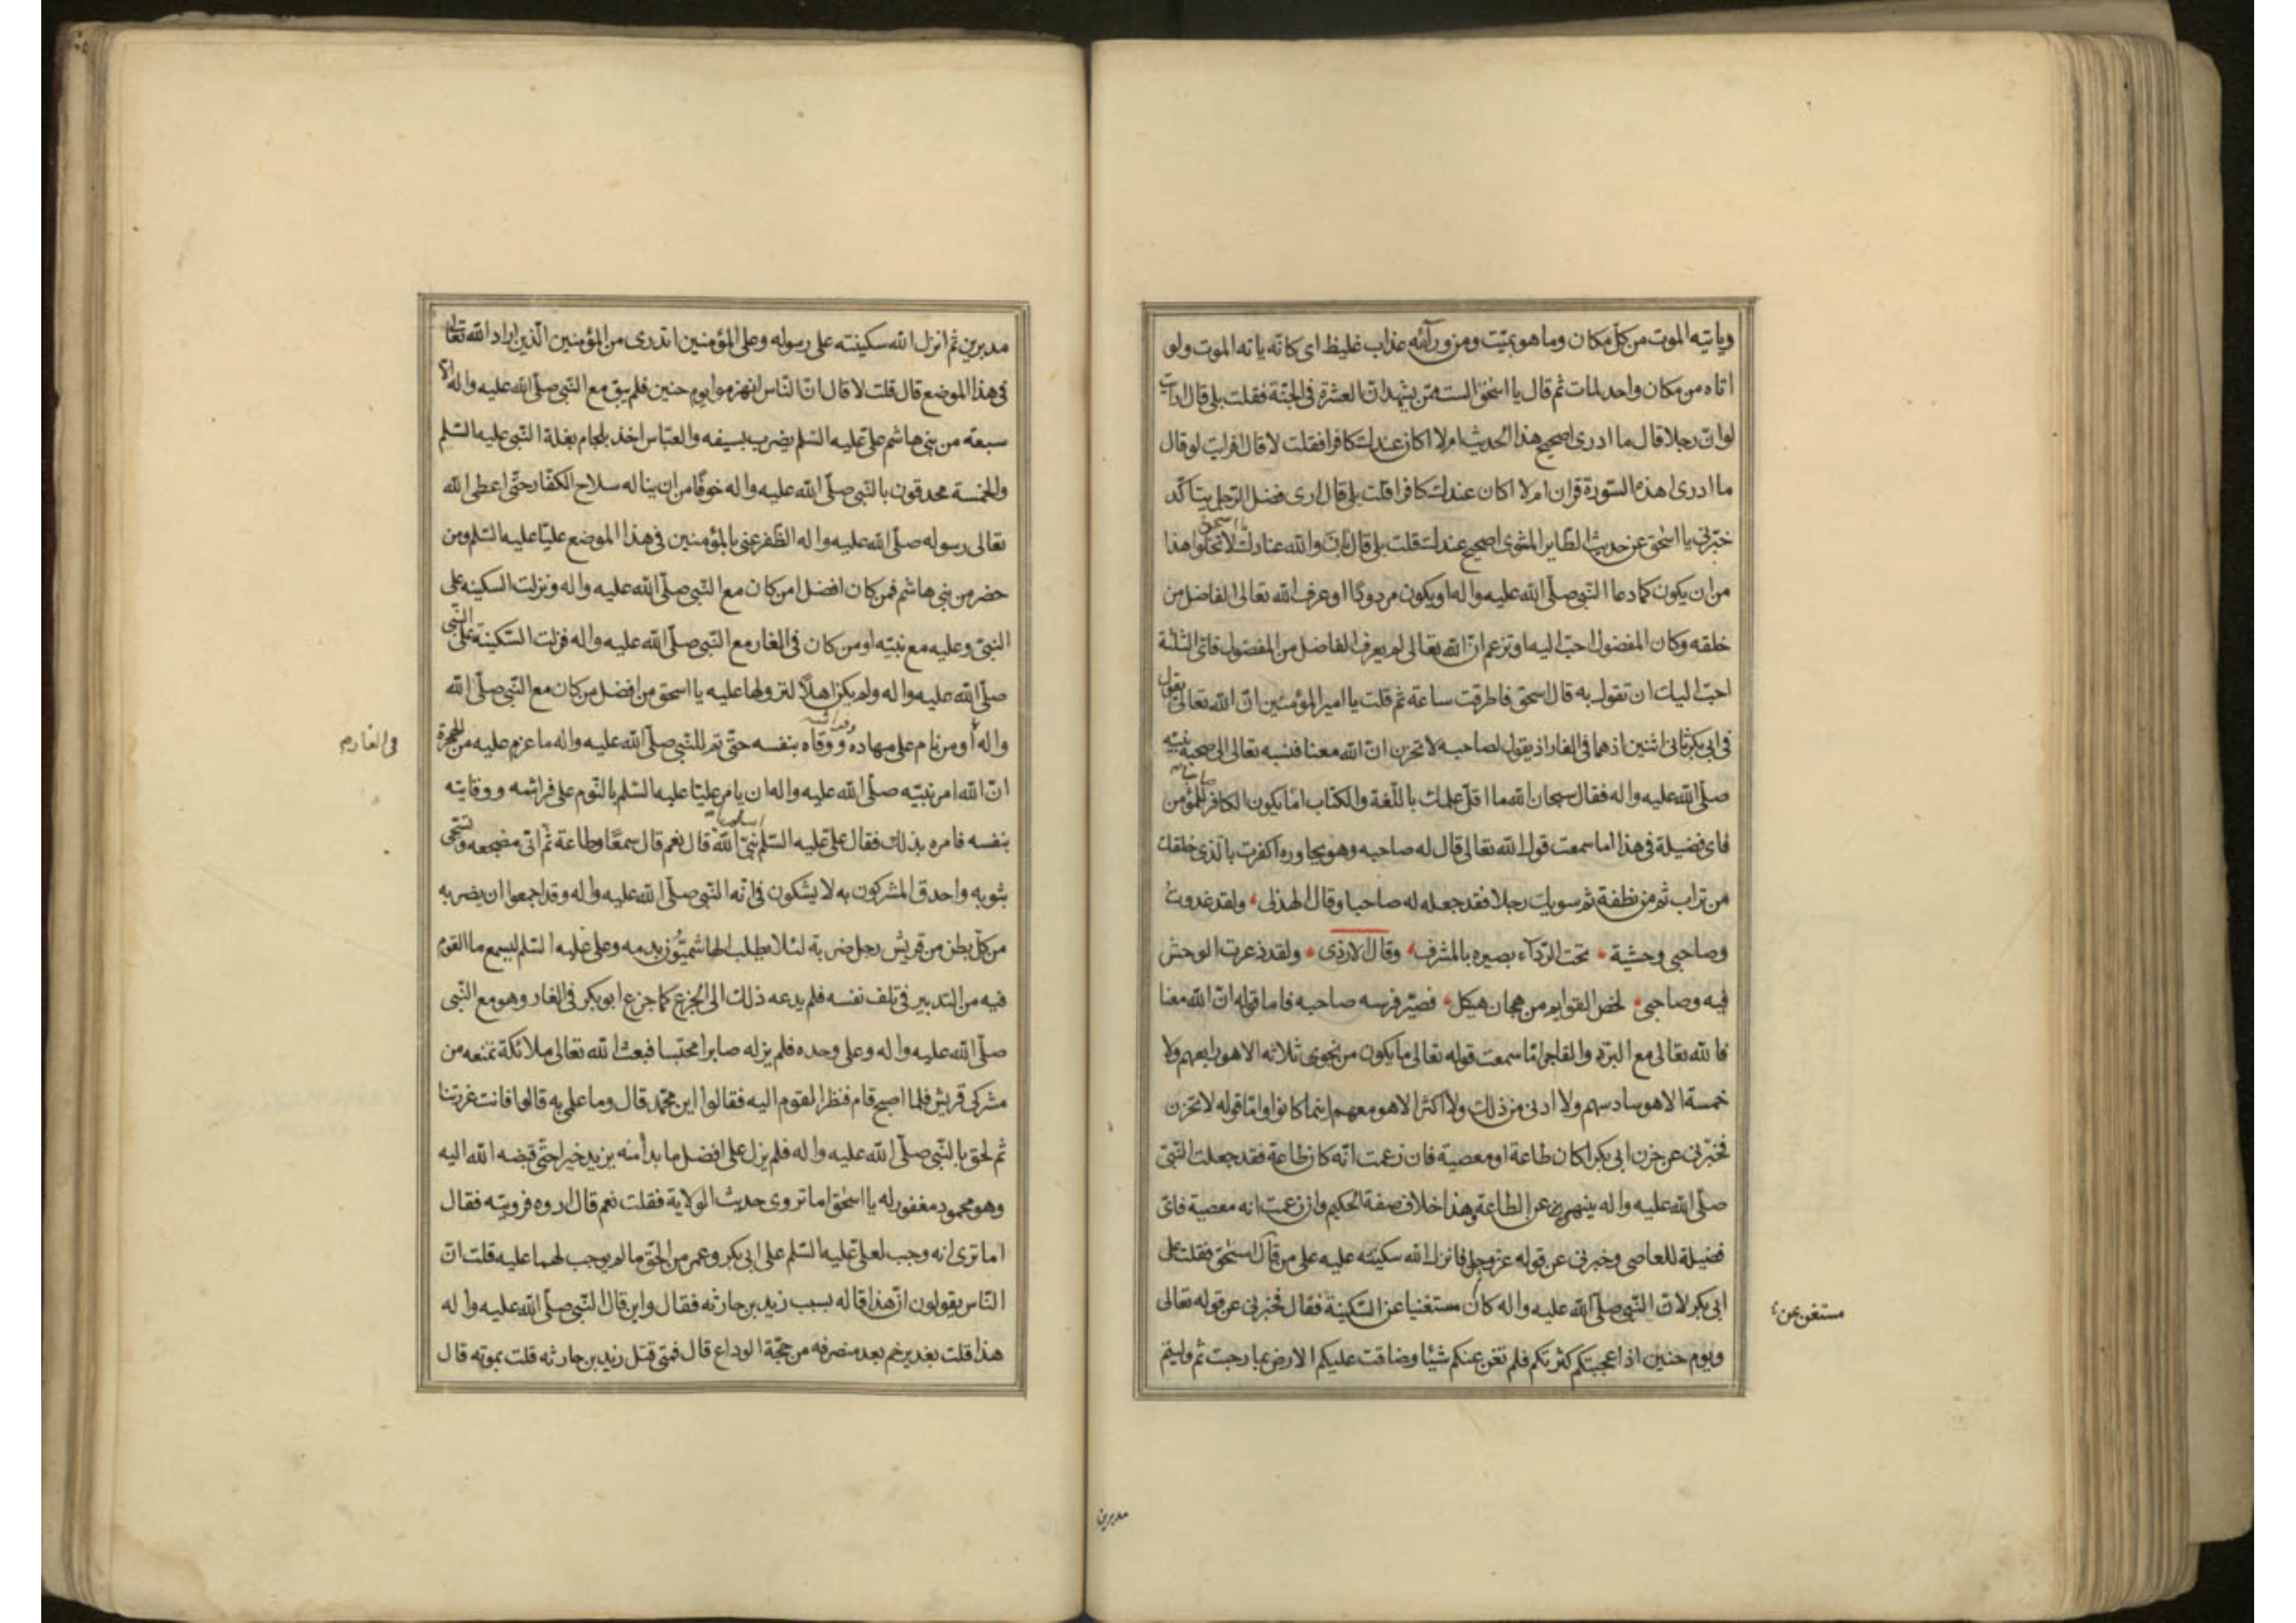 وياتيه الموت من كل مكان وما هو بميّت ومن ورآئه عذاب غليظ اى كانّه ياته الموت ولو
اتاه من مكان واحد لمات ثم قال يا اسحق الست ممّن يشهد انّ العشرة فى الجنّة فقلت بلى قال ارايت
لو انّ رجلا قال ما ادرى اصحيح هذا الحديث ام لا اكان عندك كافرا فقلت لا قال افرايت لو قال
ما ادرى اهذه السّورة قران ام لا اكان عندك كافرا قلت بلى قال ارى فضل الرّجل يتاكّد
خبّرنى يا اسحق عن حديث الطّاير المشوى اصحيح عندك قلت بلى قال بان والله عنادك لا تخلوا هذا
يا اسحق
من ان يكون كما دعا النّبى صلّى الله عليه واله او يكون مردودًا او عرف الله تعالى الفاضل من
خلقه وكان المفضول احبّ اليه او تزعم انّ الله تعالى لم يعرف الفاضل من المفضول فاىّ الثلثة
احبّ اليك ان تقول به قال اسحق فاطرقت ساعة ثم قلت يا امير المؤمنين انّ الله تعالى يقول
فى ابى بكر ثانى اثنين اذ هما فى الغار اذ يقول لصاحبه لا تحزن انّ الله معنا فنسبه تعالى الى صحبة نبيّه
صلّى الله عليه واله فقال سبحان الله ما اقلّ علمك باللّغة والكتاب امّا يكون الكافر للمؤمن
صاحبا
فاى فضيلة فى هذا اما سمعت قول الله تعالى قال له صاحبه وهو يحاوره اكفرت بالّذى خلقك
من تراب ثم من نطفة ثم سويك رجلا فقد جعله له صاحبا وقال الهذلى ولقد غدوت
وصاحبى وحشية تحت الرّدآء بصيره بالمشرف وقال الازدى ولقد ذعرت الوحش
فيه وصاحبى لخص القوايم من هجان هيكل فصيّر فرسه صاحبه فاما قوله انّ الله معنا
فا لله تعالى مع البرّ والفاجر امّا سمعت قوله تعالى ما يكون من نجوى ثلاثه الا هو رابعهم ولا
خمسة الا هو سادسهم ولا ادنى من ذلك ولا اكثر الا هو معهم اينما كانوا وامّا قوله لا تحزن
فخبّرنى عن حزن ابى بكر اكان طاعة او معصية فان زعمت انّه كان طاعة فقد جعلت النّبىّ
صلّى الله عليه واله ينهى عن الطاعة وهذا خلاف صفة الحكيم وان زعمت انه معصية فاىّ
فضيلة للعاصى وخبرنى عن قوله عزّ وجل فانزل الله سكينته عليه على من قال اسحق فقلت على
ابى بكر لانّ النّبى صلّى الله عليه واله كان مستغنيا عن السّكينة فقال فخبرنى عن قوله تعالى
مستغن عن
ويوم حنين اذ اعجبتكم كثرتكم فلم تغن عنكم شيئا وضاقت عليكم الارض بما رحبت ثم وليتم
مدبرين
مدبرين ثم انزل الله سكينته على رسوله وعلى المؤمنين اتدرى من المؤمنين الّذين اراد الله تعالى
فى هذا الموضع قال قلت لا قال انّ النّاس انهزموا يوم حنين فلم يبق مع النّبى صلّى الله عليه واله الّا
سبعة من بنى هاشم علىّ عليه السّلم يضرب بسيفه والعبّاس اخذ بلجام بغلة النّبى عليه السّلم
والخمسة محدقون بالنّبى صلّى الله عليه واله خوفًا من ان يناله سلاح الكفّار حتّى اعطى الله
تعالى رسوله صلّى الله عليه واله الظّفر عنى بالمؤمنين فى هذا الموضع عليّا عليه السّلم ومن
حضر من بنى هاشم فمن كان افضل امن كان مع النّبى صلّى الله عليه واله ونزلت السكينه على
النبىّ وعليه مع نبيّه او من كان فى الغار مع النّبى صلّى الله عليه واله فنزلت السّكينة على النّبى
صلّى الله عليه واله ولم يكن اهلًا لنزولها عليه يا اسحق من افضل من كان مع النّبى صلّى الله
واله او من نام على مهاده ووقاه بنفسه حتّى تم للنّبى صلّى الله عليه واله ما عزم عليه من الهجرة
فى الغار م
انّ الله امر نبيّه صلّى الله عليه واله ان يامر عليّا عليه السّلم بالنّوم على فراشه ووقايته
بنفسه فامره بذلك فقال علىّ عليه السّلم نبىّ الله قال نعم قال سمعًا وطاعة ثم اتى مضجعه وتسجّى
بثوبه واحدق المشركون به لا يشكون فى انّه النّبى صلّى الله عليه واله وقد اجمعوا ان يضربه
من كلّ بطن من قريش رجل ضربة لئلا يطلب الهاشميّون بدمه وعلى عليه السّلم يسمع ما القوم
فيه من التدبير فى تلف نفسه فلم يدعه ذلك الى الجزع كما جزع ابو بكر فى الغار وهو مع النّبى
صلّى الله عليه واله وعلى وحده فلم يزله صابرا محتسبا فبعث الله تعالى ملائكة تمنعه من
مشركى قريش فلما اصبح قام فنظر القوم اليه فقالوا اين محمّد قال وما علمى به قالوا فانت غررتنا
ثم لحق بالنّبى صلّى الله عليه واله فلم يزل على افضل ما بدا منه يزيد خيرا حتّى قبضه الله اليه
وهو محمود مغفور له يا اسحق اما تروى حديث الولاية فقلت نعم قال اروه فرويته فقال
اما ترى انه وجب لعلىّ عليه السّلم على ابى بكر وعمر من الحقّ ما لم يوجب لهما عليه قلت انّ
النّاس يقولون انّ هذا قاله بسبب زيد بن حارثه فقال واين قال النّبى صلّى الله عليه واله
هذا قلت بغدير خم بعد منصرفه من حجّة الوداع قال فمتى قتل زيد بن حارثه قلت بموته قال